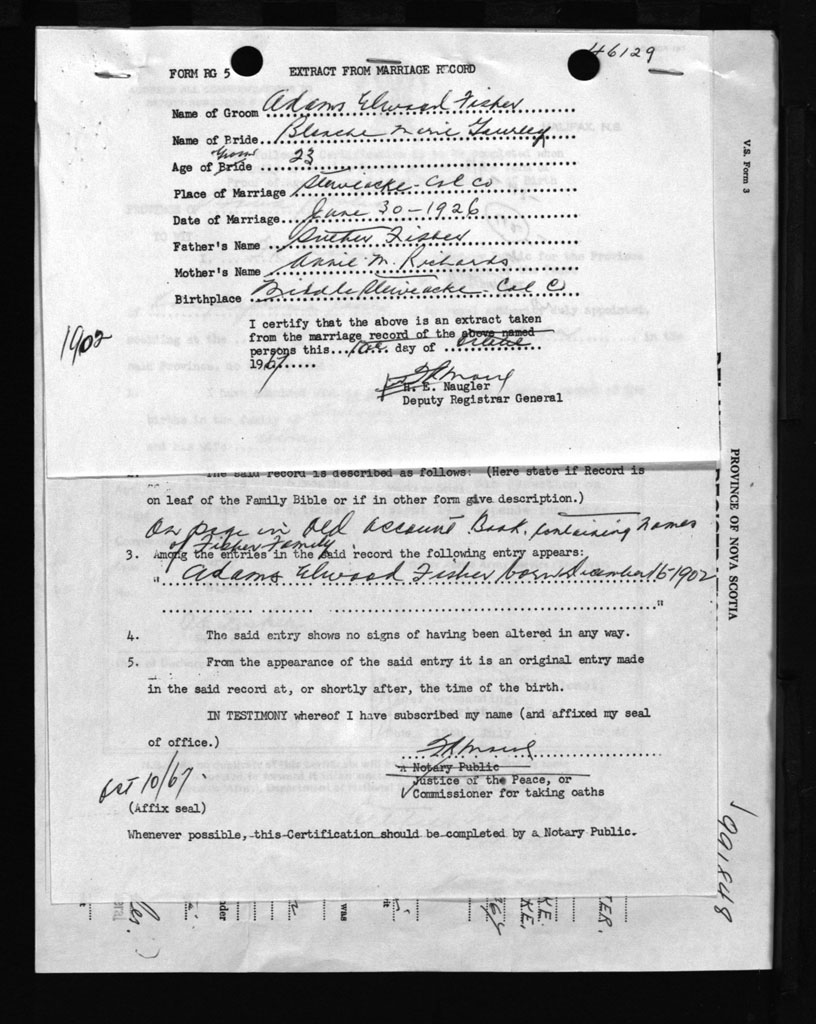 46129
FORM RG 5 EXTRACT FROM MARRIAGE RECORD
Name of Groom Adams Elwood Fisher
Name of Bride Blanche Marie
Groom
Age of Bride 23
Place of Marriage Stewiacke Col Co
Date of Marriage June 30-1926
Father's Name Luther Fisher
Mother's Name Annie M. Richards
Birthplace Middle Stewiacke - Col C
1902
I certify that the above is an extract taken
from the marriage record of the above named
persons this day of
1967
H. E. Naugler
Deputy Registrar General
V.S. Form 3
PROVINCE OF NOVA SCOTIA
2. The said record is described as follows: (Here state if Record is
on leaf of the Family Bible or if in other form give description.)
On page in Old Account Book, containing names
of Fisher Family
3. Among the entries in the said record the following entry appears:
" Adams Elwood Fisher born December 15-1902
"
4. The said entry shows no signs of having been altered in any way.
5. From the appearance of the said entry it is an original entry made
in the said record at, or shortly after, the time of the birth.
IN TESTIMONY whereof I have subscribed my name (and affixed my seal
of office.)
A Notary Public
Justice of the Peace, or
Commissioner for taking oaths
Oct 10/67.
(Affix seal)
Whenever possible, this Certification should be completed by a Notary Public.
1991848